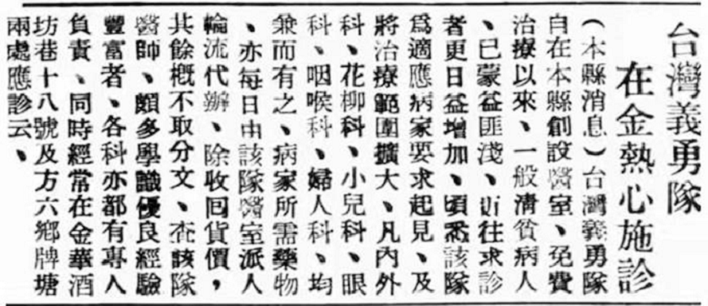 台灣義勇隊
在金熱心施診
(本縣消息)台灣義勇隊
自在本縣創設醫室、免費
治療以來、一般清貧病人
、已蒙益匪淺、近往求診
者更日益增加、頃悉該隊
爲適應病家要求起見、及
將治療範圍擴大、凡內外
科、花柳科、小兒科、眼
科、咽喉科、婦人科、均
兼而有之、病家所需藥物
、亦每日由該隊醫室派人
輪流代辦、除收回貨價，
其餘概不取分文、查該隊
醫師、頗多學識優良經驗
豐富者、各科亦都有專人
負責、同時經常在金華酒
坊巷十八號及方六鄉牌塘
兩處應診云、